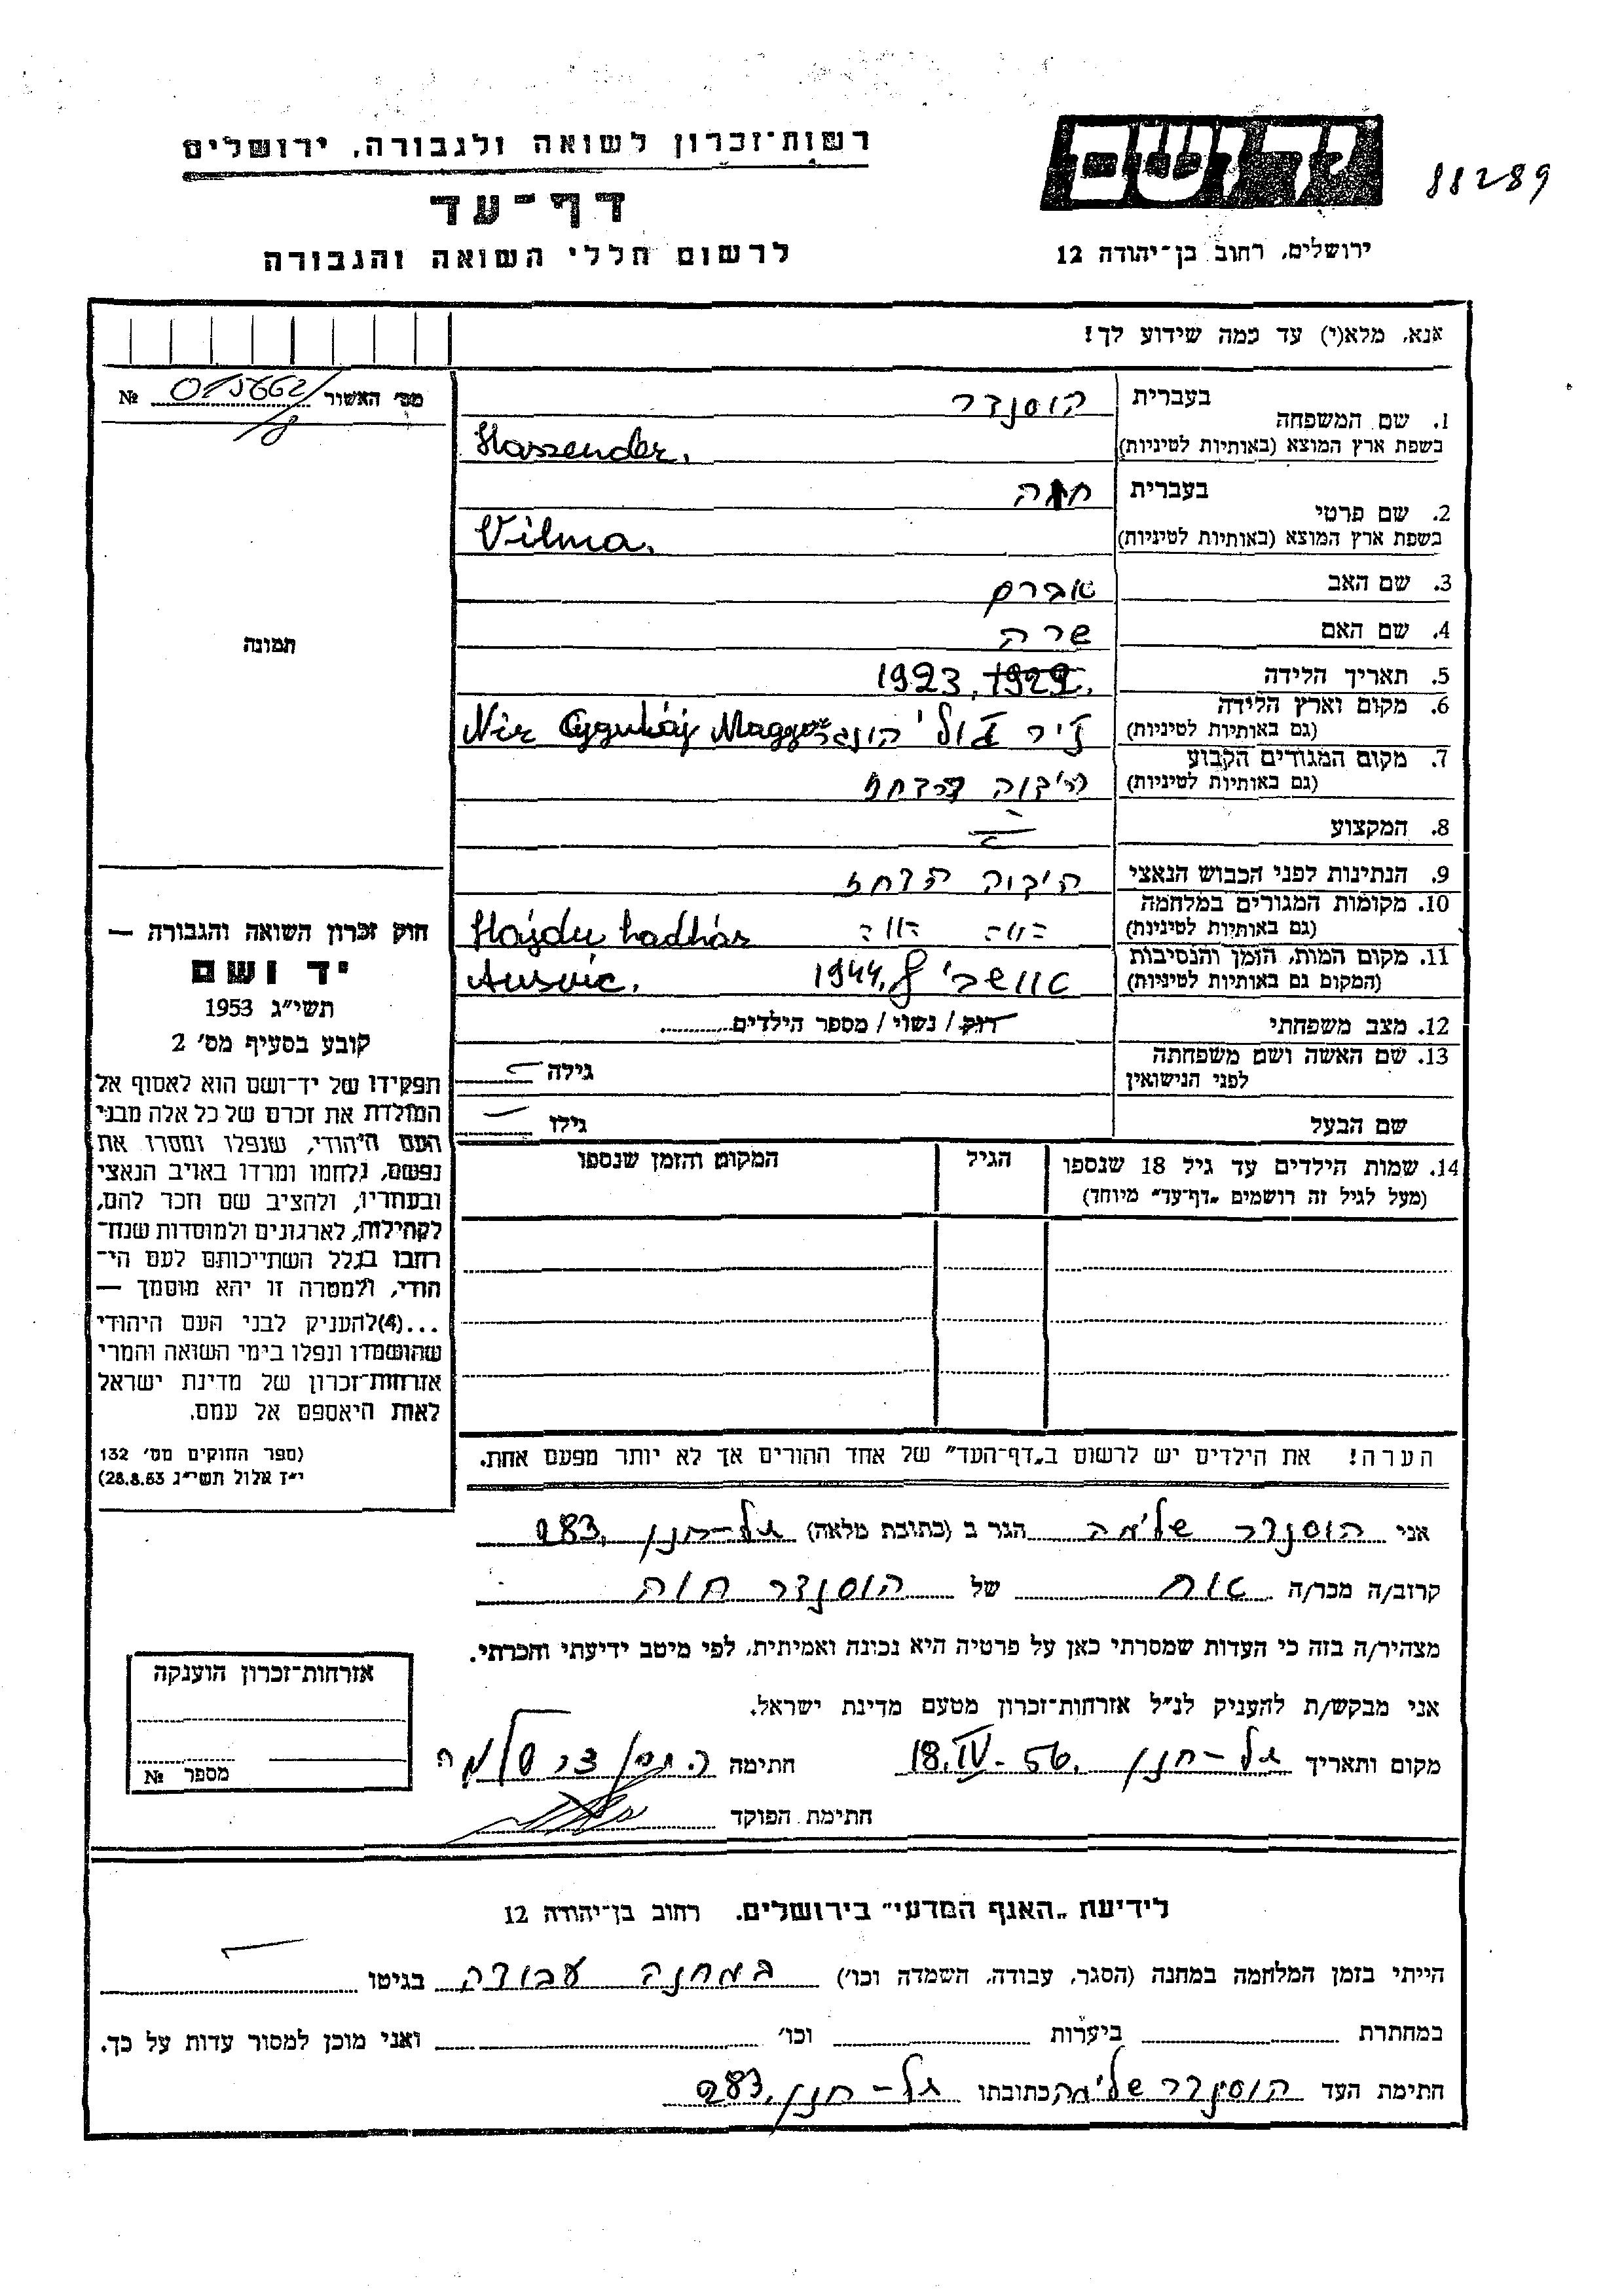 רשות־זכרון לשואה ולגבורה, ירושלים
דף־עד
לרשום חללי השואה והגבורה
ידושם
88289
ירושלים, רחוב בן־יהודה 12
אנא, מלא(י) עד כמה שידוע לך!
מס' האשור № 015662/8
1. שם המשפחה בעברית הוסנדר
בשפת ארץ המוצא (באותיות לטיניות) Haszender.
2. שם פרטי בעברית חוה
בשפת ארץ המוצא (באותיות לטיניות) Vilma.
3. שם האב אברם
4. שם האם שרה
5. תאריך הלידה 1922, 1923
6. מקום וארץ הלידה
(גם באותיות לטיניות) Nir
7. מקום המגורים הקבוע
(גם באותיות לטיניות)
8. המקצוע
9. הנתינות לפני הכבוש הנאצי
10. מקומות המגורים במלחמה
(גם באותיות לטיניות) Hajdu hadház
11. מקום המות, הזמן והנסיבות
(המקום גם באותיות לטיניות) 1944 Ausvic.
12. מצב משפחתי רוק / נשוי / מספר הילדים
13. שם האשה ושם משפחתה
לפני הנישואין גילה
שם הבעל גילו
14. שמות הילדים עד גיל 18 שנספו הגיל המקום והזמן שנספו
(מעל לגיל זה רושמים „דף־עד” מיוחד)
הערה! את הילדים יש לרשום ב„דף־העד” של אחד ההורים אך לא יותר מפעם אחת.
תמונה
חוק זכרון השואה והגבורה —
יד ושם
תשי״ג 1953
קובע בסעיף מס' 2
תפקידו של יד־ושם הוא לאסוף אל
המולדת את זכרם של כל אלה מבני
העם היהודי, שנפלו ומסרו את
נפשם, נלחמו ומרדו באויב הנאצי
ובעוזריו, ולהציב שם וזכר להם,
לקהילות, לארגונים ולמוסדות שנח־
רבו בגלל השתייכותם לעם הי־
הודי, ולמטרה זו יהא מוסמך —
...(4) להעניק לבני העם היהודי
שהושמדו ונפלו בימי השואה והמרי
אזרחות־זכרון של מדינת ישראל
לאות היאספם אל עמם.
(ספר החוקים מס' 132
י״ז אלול תשי״ג 28.8.53)
אני הוסנדר שלימה הגר ב (כתובת מלאה) גל-חנן, 283
קרוב/ה מכר/ה אח של הוסנדר חוה
מצהיר/ה בזה כי העדות שמסרתי כאן על פרטיה היא נכונה ואמיתית, לפי מיטב ידיעתי והכרתי.
אני מבקש/ת להעניק לנ״ל אזרחות־זכרון מטעם מדינת ישראל.
מקום ותאריך גל-חנן 18.IV-56. חתימה
חתימת הפוקד
אזרחות־זכרון הוענקה
מספר №
לידיעת „האגף המדעי” בירושלים, רחוב בן־יהודה 12
הייתי בזמן המלחמה במחנה (הסגר, עבודה, השמדה וכו') במחנה עבודה בגיטו
במחתרת ביערות וכו' ואני מוכן למסור עדות על כך.
חתימת העד הוסנדר שלימה כתובתו גל-חנן, 283